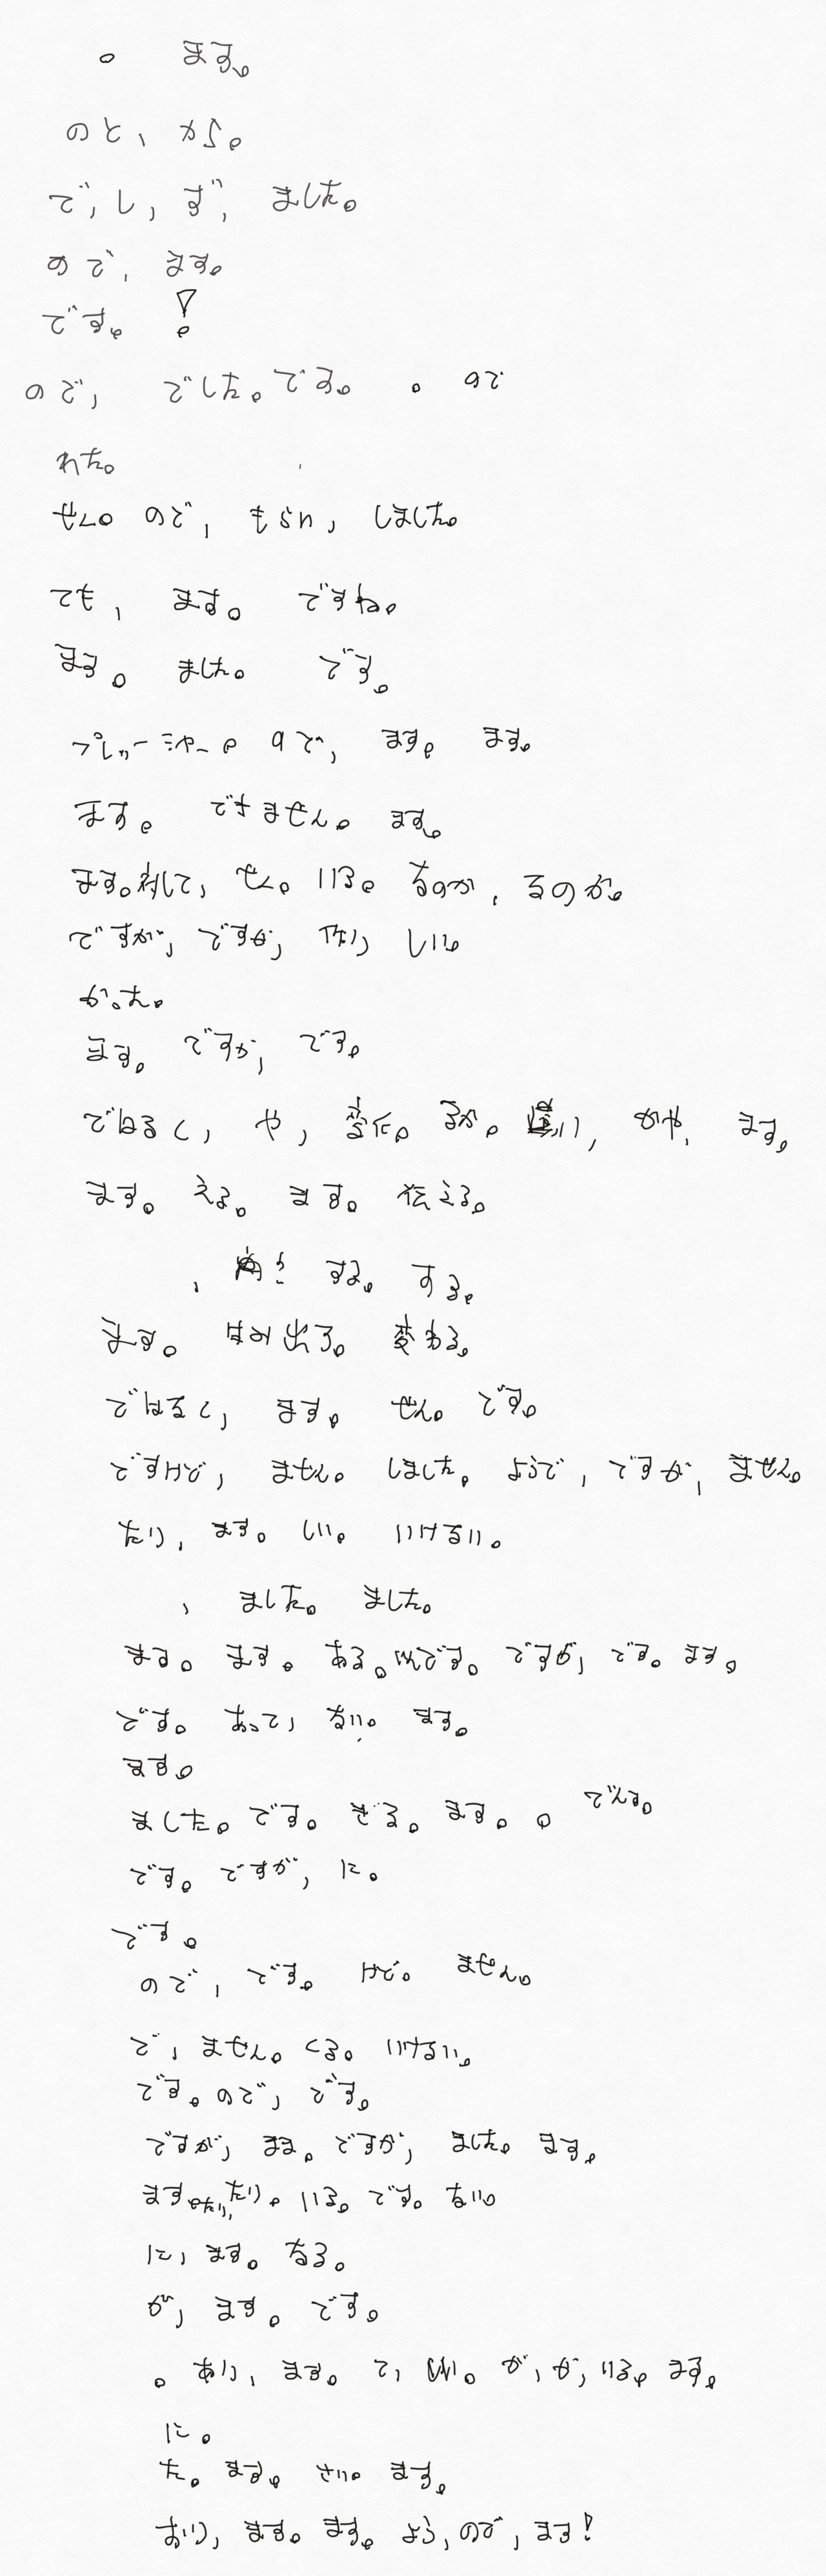 。 ます。
のと、から。
で、し、ず、ました。
ので、ます。
です。!
ので、でした。です。。ので
れた。
せん。ので、もらい、しました。
ても、ます。ですね。
ます。ました。です。
プレッシャー。ので、ます。ます。
ます。できません。ます。
ます。対して、せん。いる。るのか、るのか。
ですが、ですが、作り、しい。
かった。
ます。ですが、です。
ではなく、や、るか。い、かや、ます。
ます。える。ます。伝える。
、する。する。
ます。はみ出る。変わる。
ではなく、ます。せん。です。
ですけど、ません。しました。ようで、ですが、ません。
たり、ます。しい。いけない。
、ました。ました。
まる。ます。ある。です。ですが、です。ます。
です。あって、ない。ます。
ます。
ました。です。きる。ます。。
です。ですが、に。
です。
ので、です。けど。ません。
で、ません。くる。いけない。
です。ので、です。
ですが、まま。ですが、ました。ます。
ます。たり、たり。いる。です。ない。
に、ます。なる。
が、ます。です。
。あり、ます。て、が、が、いる。ます。
に。
た。ます。さい。ます。
おり、ます。ます。よう、ので、ます!